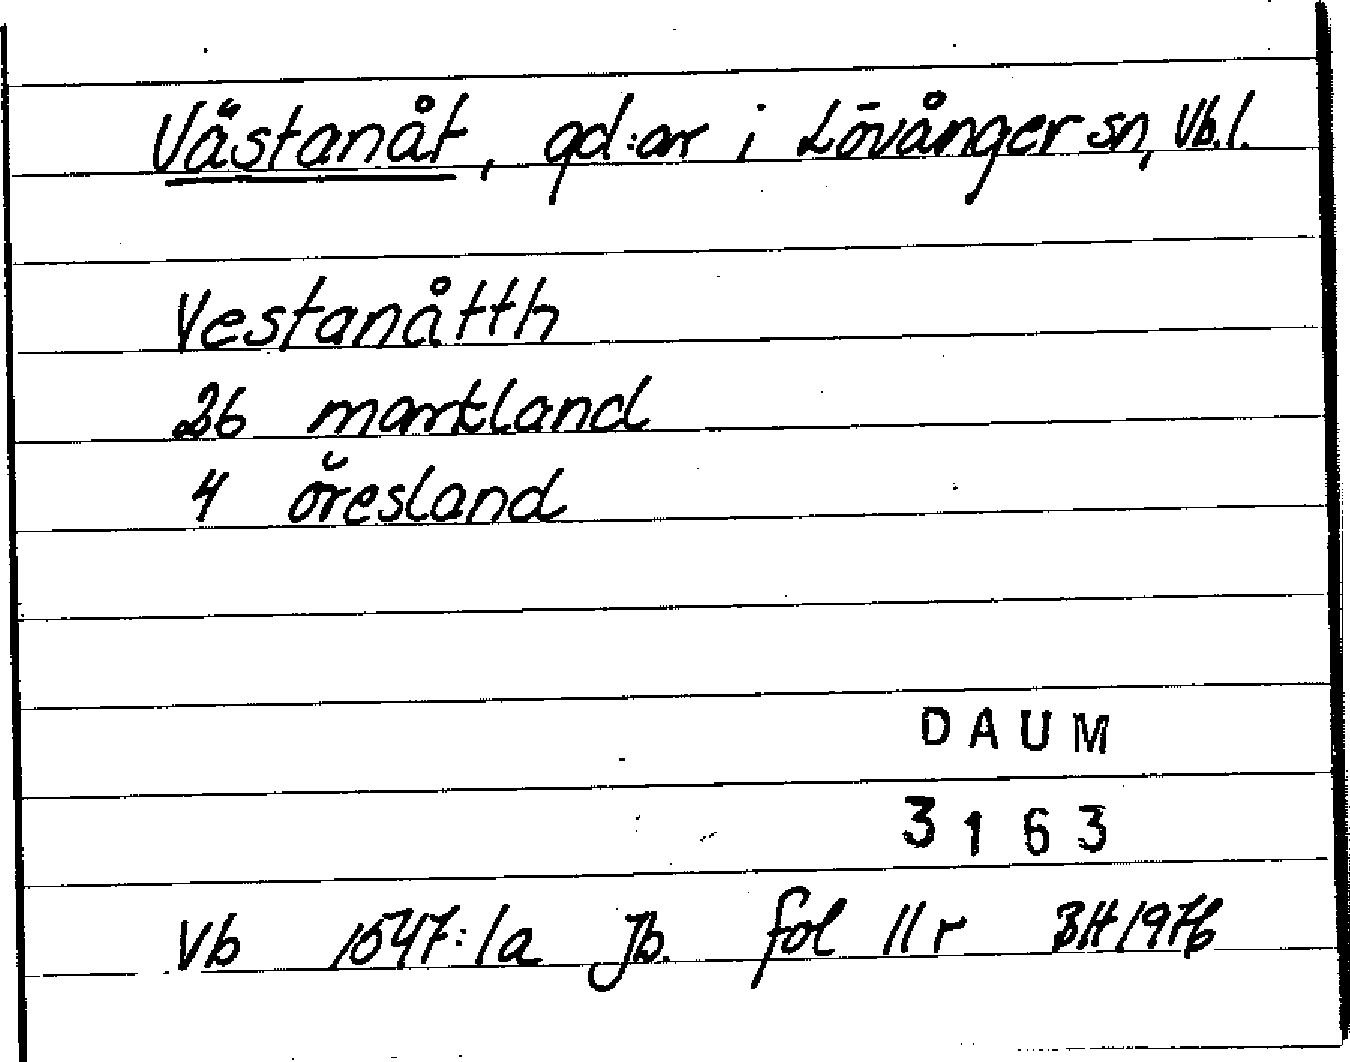 Västanåt, gd:ar i Lövånger sn, Vb.l.
Vestanåtth
26 markland
4 öresland
DAUM
3163
Vb 1547:1a Jb. fol 11 r BH 1976